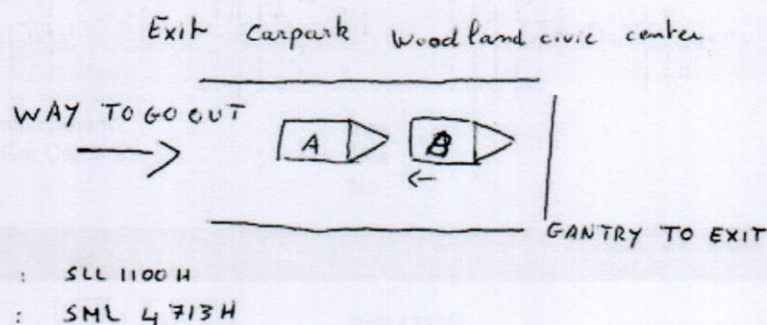 Exit Carpark Woodland civic center
WAY TO GO OUT
A B
GANTRY TO EXIT
: SLL 1100 H
: SML 4713H